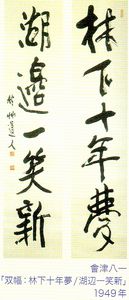 林下十年夢
湖邊一笑新
會津八一
「双幅:林下十年夢/湖辺一笑新」
1949年